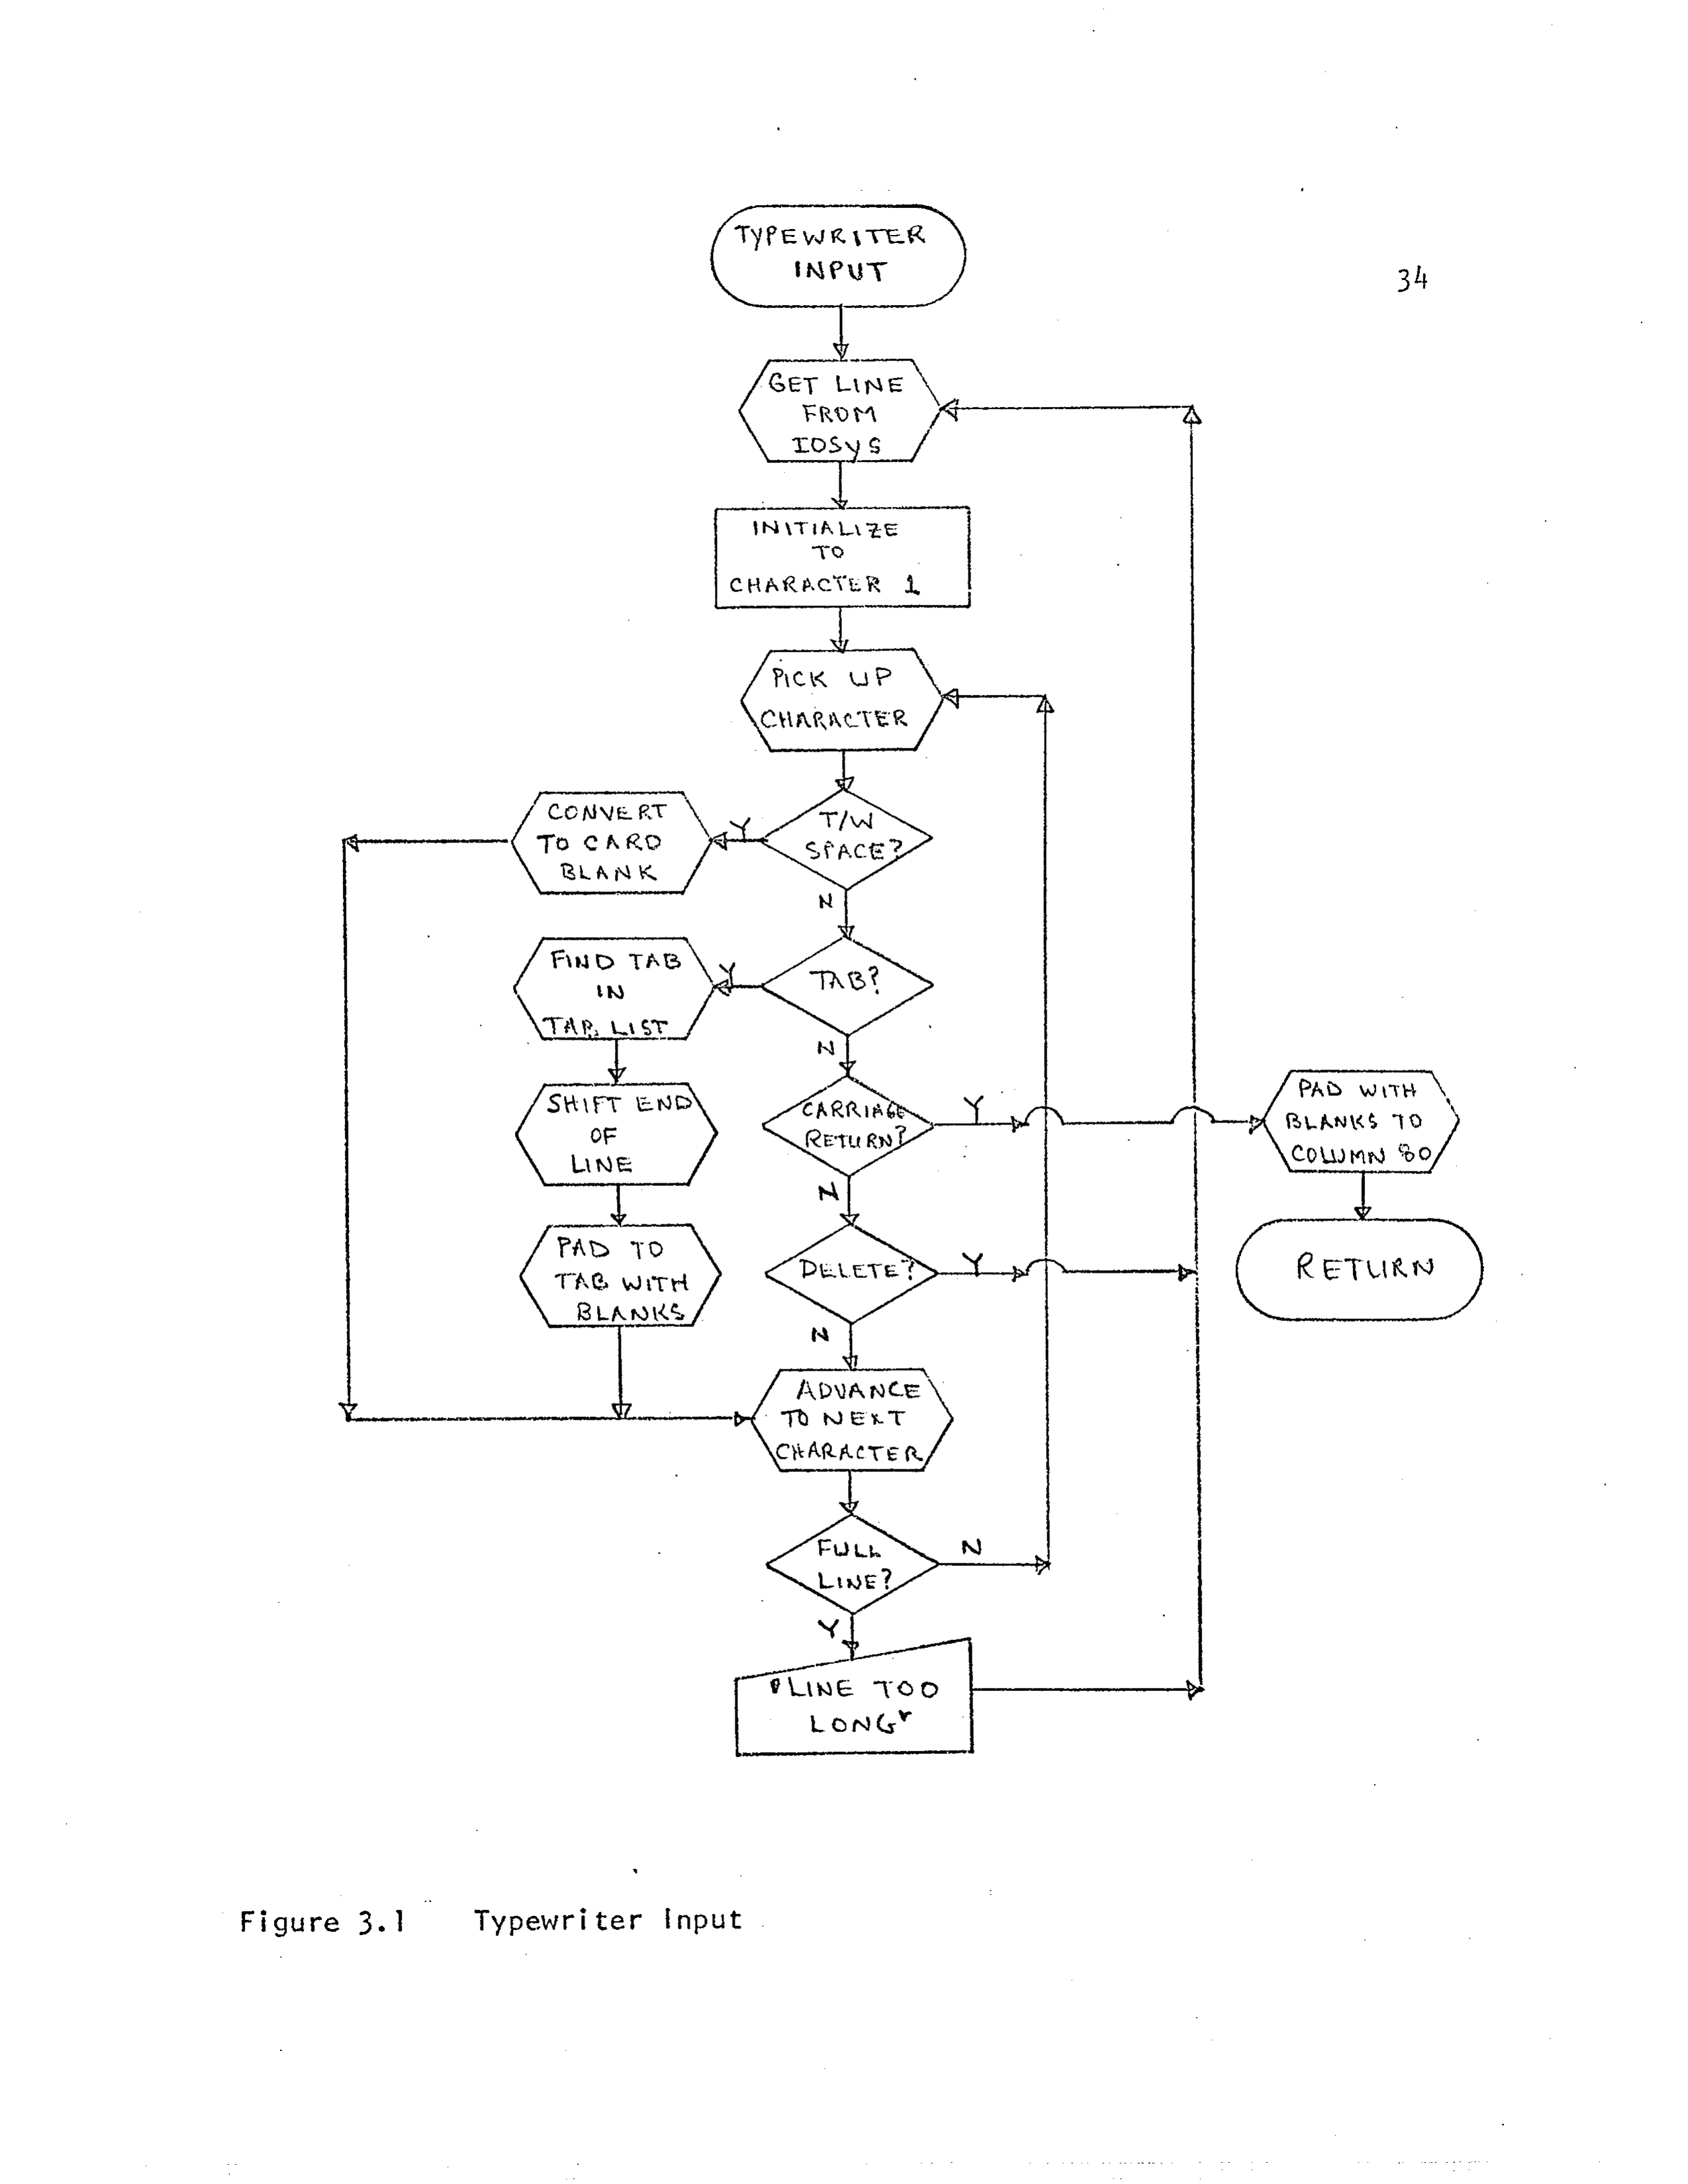 TYPEWRITER
INPUT
34
GET LINE
FROM
IOSYS
INITIALIZE
TO
CHARACTER 1
PICK UP
CHARACTER
T/W
SPACE?
Y
CONVERT
TO CARD
BLANK
N
TAB?
Y
FIND TAB
IN
TAB LIST
SHIFT END
OF
LINE
PAD TO
TAB WITH
BLANKS
N
CARRIAGE
RETURN?
Y
PAD WITH
BLANKS TO
COLUMN 80
RETURN
N
DELETE?
Y
N
ADVANCE
TO NEXT
CHARACTER
FULL
LINE?
N
Y
"LINE TOO
LONG"
Figure 3.1 Typewriter Input